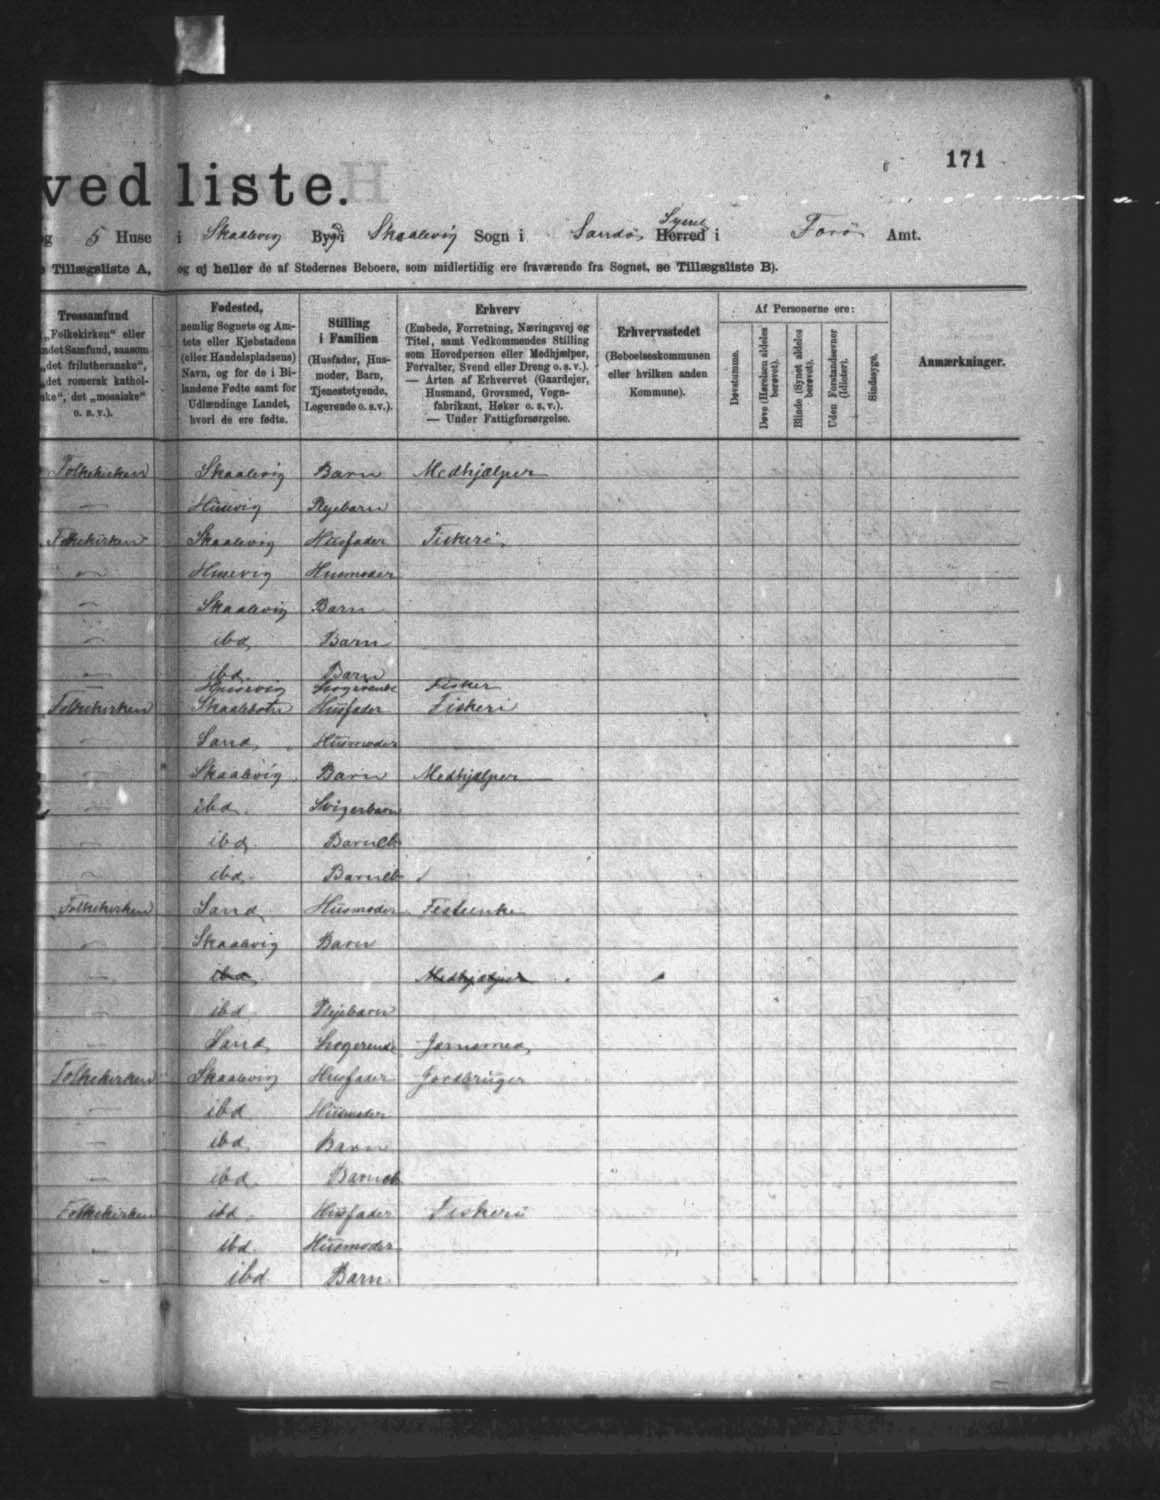 171
ved liste.
5 Huse i Skaalevig Bygd i Skaalevig Sogn i Sandø Syssel Herred i Færø Amt.
Tillægsliste A, og ej heller de af Stedernes Beboere, som midlertidig ere fraværende fra Sognet, se Tillægsliste B).
Trossamfund
„Folkekirken“ eller
andet Samfund, saasom
„det frilutheranske“,
„det romersk kathol-
ske“, det „mosaiske“
o. s. v.).
Fødested,
nemlig Sognets og Am-
tets eller Kjøbstadens
(eller Handelspladsens)
Navn, og for de i Bi-
landene Fødte samt for
Udlændinge Landet,
hvori de ere fødte.
Stilling
i Familien
(Husfader, Hus-
moder, Barn,
Tjenestetyende,
Logerende o. s. v.).
Erhverv
(Embede, Forretning, Næringsvej og
Titel, samt Vedkommendes Stilling
som Hovedperson eller Medhjælper,
Forvalter, Svend eller Dreng o. s. v.).
— Arten af Erhvervet (Gaardejer,
Husmand, Grovsmed, Vogn-
fabrikant, Høker o. s. v.).
— Under Fattigforsørgelse.
Erhvervsstedet
(Beboelseskommunen
eller hvilken anden
Kommune).
Af Personerne ere:
Døvstumme.
Døve (Hørelsen aldeles
berøvet).
Blinde (Synet aldeles
berøvet).
Uden Forstandsevner
(Idioter).
Sindssyge.
Anmærkninger.
Folkekirken Skaalevig Barn Medhjælper
— Husevig Plejebarn
Folkekirken Skaalevig Husfader Fiskeri
— Husevig Husmoder
— Skaalevig Barn
— ibd. Barn
— ibd. Barn
— Husevig Logerende Fisker
Folkekirken Skaalebotn Husfader Fiskeri
— Sand Husmoder
— Skaalevig Barn Medhjælper
— ibd. Svigerbarn
— ibd. Barneb.
— ibd. Barneb.
Folkekirken Sand Husmoder
— Skaalevig Barn
— ibd. Medhjælper
— ibd Plejebarn
— Sand Logerende Jernsmed
Folkekirken Skaalevig Husfader Jordbruger
— ibd Husmoder
— ibd Barn
— ibd. Barneb.
Folkekirken ibd. Husfader Fiskeri
— ibd. Husmoder
— ibd Barn